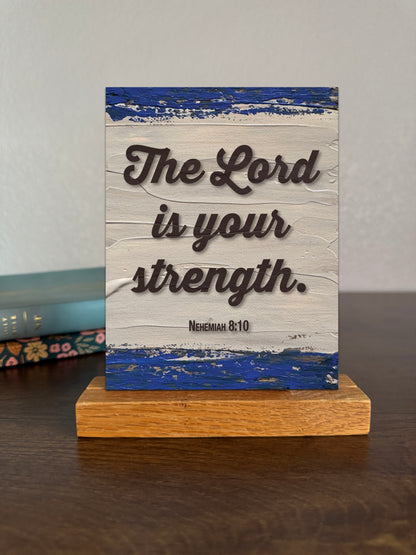 The Lord
is your
strength.
Nehemiah 8:10